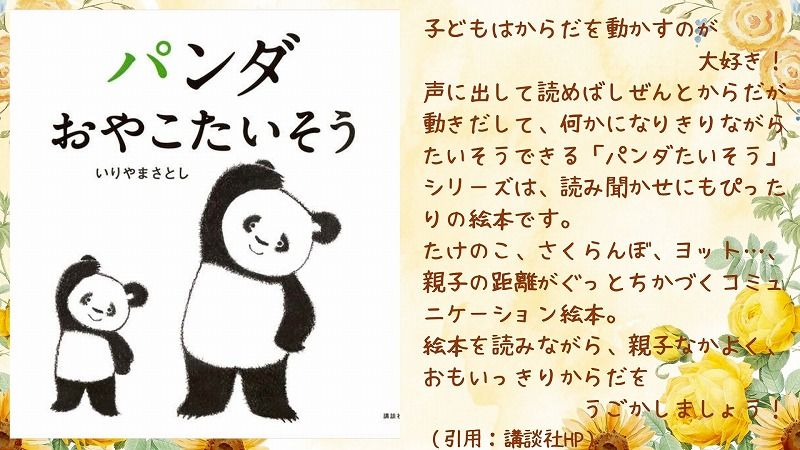 パンダ
おやこたいそう
いりやまさとし
講談社
子どもはからだを動かすのが
大好き！
声に出して読めばしぜんとからだが
動きだして、何かになりきりながら
たいそうできる「パンダたいそう」
シリーズは、読み聞かせにもぴった
りの絵本です。
たけのこ、さくらんぼ、ヨット…、
親子の距離がぐっとちかづくコミュ
ニケーション絵本。
絵本を読みながら、親子なかよく、
おもいっきりからだを
うごかしましょう！
（引用：講談社HP）